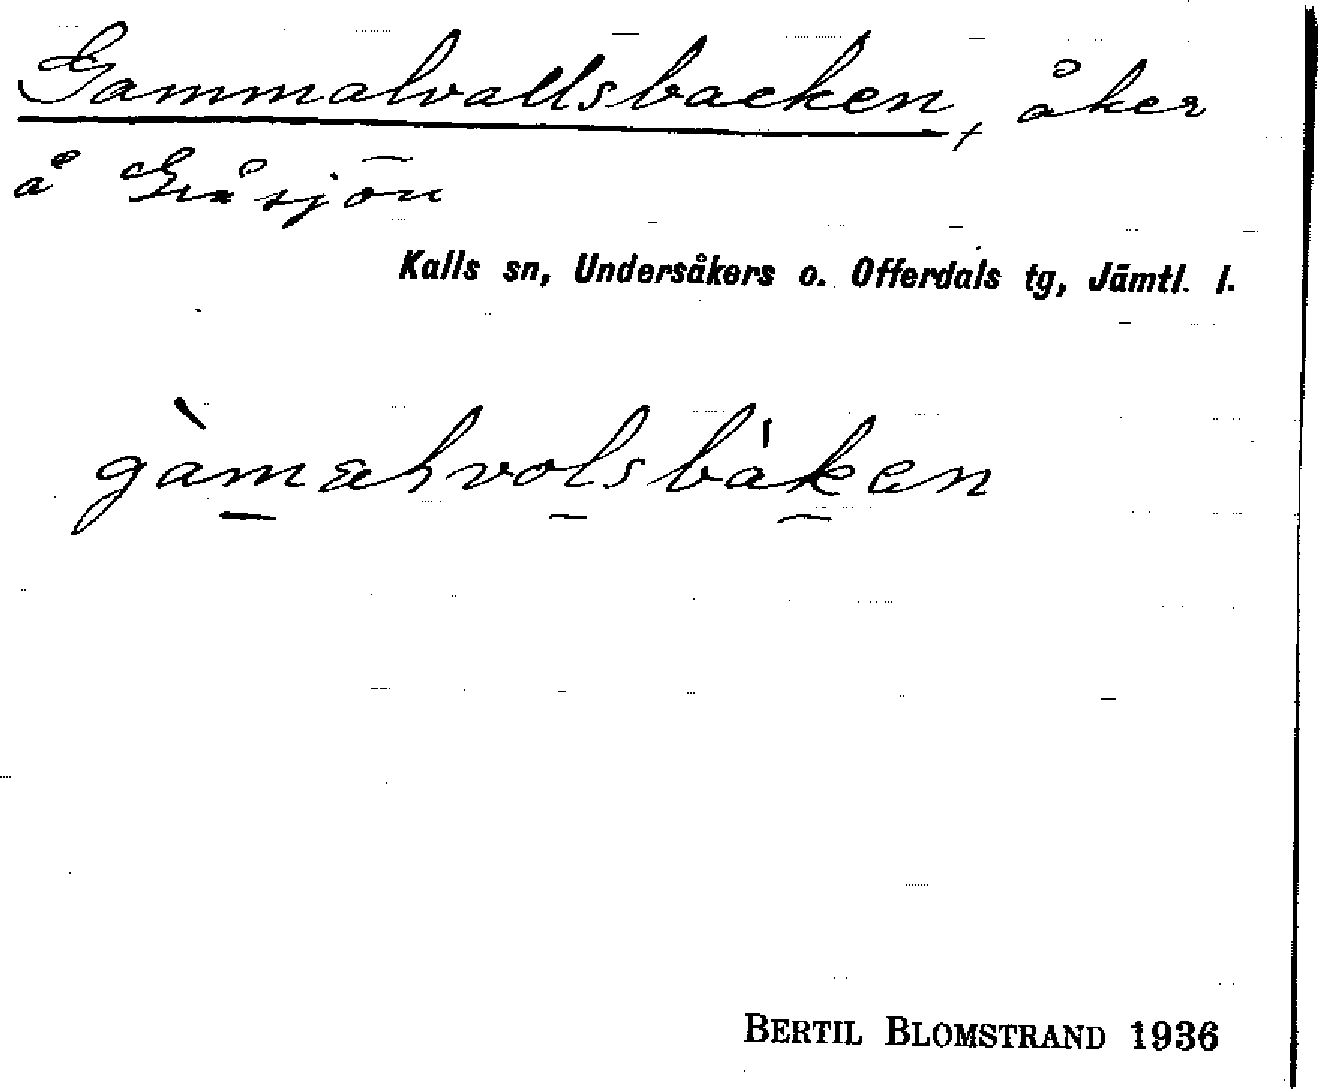 Gammalvallsbacken, åker
å Gåsjön
Kalls sn, Undersåkers o. Offerdals tg, Jämtl. l.
gàmalvolsbákan
BERTIL BLOMSTRAND 1936